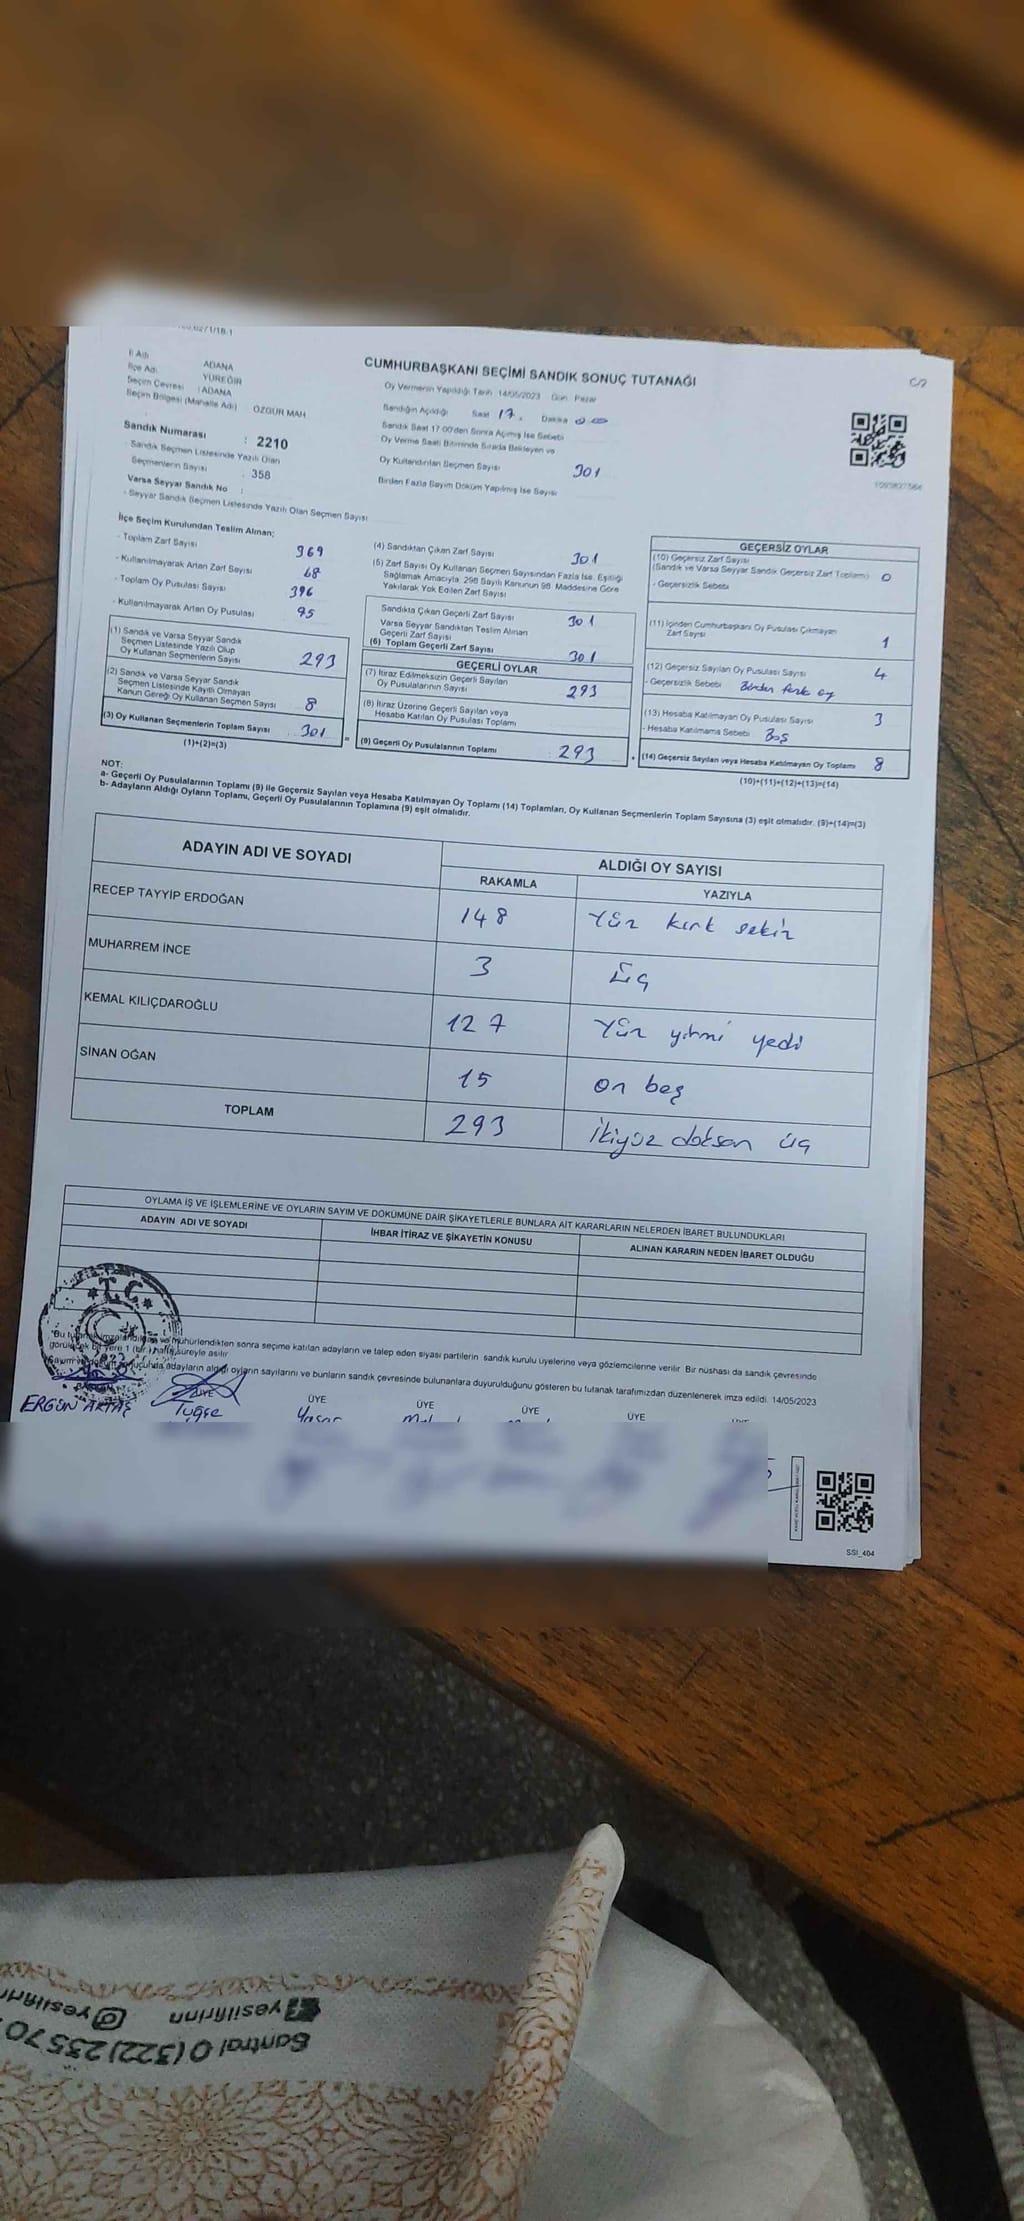 CUMHURBAŞKANI SEÇİMİ SANDIK SONUÇ TUTANAĞI
C/2
İl Adı ADANA
İlçe Adı YÜREĞİR
Seçim Çevresi : ADANA
Seçim Bölgesi (Mahalle Adı) ÖZGÜR MAH
Sandık Numarası : 2210
- Sandık Seçmen Listesinde Yazılı Olan
Seçmenlerin Sayısı : 358
Varsa Seyyar Sandık No :
- Seyyar Sandık Seçmen Listesinde Yazılı Olan Seçmen Sayısı
Oy Vermenin Yapıldığı Tarih 14/05/2023 Gün: Pazar
Sandığın Açıldığı Saat 17. Dakika 00
Sandık Saat 17:00'den Sonra Açımış İse Sebebi
Oy Verme Saati Bitiminde Sırada Bekleyen ve
Oy Kullandırılan Seçmen Sayısı 301
Birden Fazla Sayım Döküm Yapılmış İse Sayısı
İlçe Seçim Kurulundan Teslim Alınan;
- Toplam Zarf Sayısı 369
- Kullanılmayarak Artan Zarf Sayısı 68
- Toplam Oy Pusulası Sayısı 396
- Kullanılmayarak Artan Oy Pusulası 95
(1) Sandık ve Varsa Seyyar Sandık
Seçmen Listesinde Yazılı Olup
Oy Kullanan Seçmenlerin Sayısı 293
(2) Sandık ve Varsa Seyyar Sandık
Seçmen Listesinde Kayıtlı Olmayan
Kanun Gereği Oy Kullanan Seçmen Sayısı 8
(3) Oy Kullanan Seçmenlerin Toplam Sayısı 301
(1)+(2)=(3)
(4) Sandıktan Çıkan Zarf Sayısı 301
(5) Zarf Sayısı Oy Kullanan Seçmen Sayısından Fazla İse, Eşitliği
Sağlamak Amacıyla, 298 Sayılı Kanunun 98. Maddesine Göre
Yakılarak Yok Edilen Zarf Sayısı
Sandıkta Çıkan Geçerli Zarf Sayısı 301
Varsa Seyyar Sandıktan Teslim Alınan
Geçerli Zarf Sayısı
(6) Toplam Geçerli Zarf Sayısı 301
GEÇERLİ OYLAR
(7) İtiraz Edilmeksizin Geçerli Sayılan
Oy Pusulalarının Sayısı 293
(8) İtiraz Üzerine Geçerli Sayılan veya
Hesaba Katılan Oy Pusulası Toplamı
= (9) Geçerli Oy Pusulalarının Toplamı : 293
GEÇERSİZ OYLAR
(10) Geçersiz Zarf Sayısı
(Sandık ve Varsa Seyyar Sandık Geçersiz Zarf Toplamı) 0
- Geçersizlik Sebebi
(11) İçinden Cumhurbaşkanı Oy Pusulası Çıkmayan
Zarf Sayısı 1
(12) Geçersiz Sayılan Oy Pusulası Sayısı 4
- Geçersizlik Sebebi Birden fazla oy
(13) Hesaba Katılmayan Oy Pusulası Sayısı 3
- Hesaba Katılmama Sebebi Boş
+ (14) Geçersiz Sayılan veya Hesaba Katılmayan Oy Toplamı 8
(10)+(11)+(12)+(13)=(14)
NOT:
a- Geçerli Oy Pusulalarının Toplamı (9) ile Geçersiz Sayılan veya Hesaba Katılmayan Oy Toplamı (14) Toplamları, Oy Kullanan Seçmenlerin Toplam Sayısına (3) eşit olmalıdır. (9)+(14)=(3)
b- Adayların Aldığı Oyların Toplamı, Geçerli Oy Pusulalarının Toplamına (9) eşit olmalıdır.
ADAYIN ADI VE SOYADI ALDIĞI OY SAYISI
RAKAMLA YAZIYLA
RECEP TAYYİP ERDOĞAN 148 Yüz kırk sekiz
MUHARREM İNCE 3 Üç
KEMAL KILIÇDAROĞLU 127 Yüz yirmi yedi
SİNAN OĞAN 15 on beş
TOPLAM 293 İkiyüz doksan üç
OYLAMA İŞ VE İŞLEMLERİNE VE OYLARIN SAYIM VE DÖKÜMÜNE DAİR ŞİKAYETLERLE BUNLARA AİT KARARLARIN NELERDEN İBARET BULUNDUKLARI
ADAYIN ADI VE SOYADI İHBAR İTİRAZ VE ŞİKAYETİN KONUSU ALINAN KARARIN NEDEN İBARET OLDUĞU
T.C.
"Bu mühürlendikten sonra seçime katılan adayların ve talep eden siyasi partilerin sandık kurulu üyelerine veya gözlemcilerine verilir. Bir nüshası da sandık çevresinde
bir yere 1 (bir) hafta süreyle asılır
adayların aldığı oyların sayılarını ve bunların sandık çevresinde bulunanlara duyurulduğunu gösteren bu tutanak tarafımızdan düzenlenerek imza edildi. 14/05/2023
ÜYE ÜYE ÜYE ÜYE ÜYE
ERGÜN AKTAŞ Tuğçe Yaşar
SSI_404
yesilfirin
Santral 0 (322) 235 70